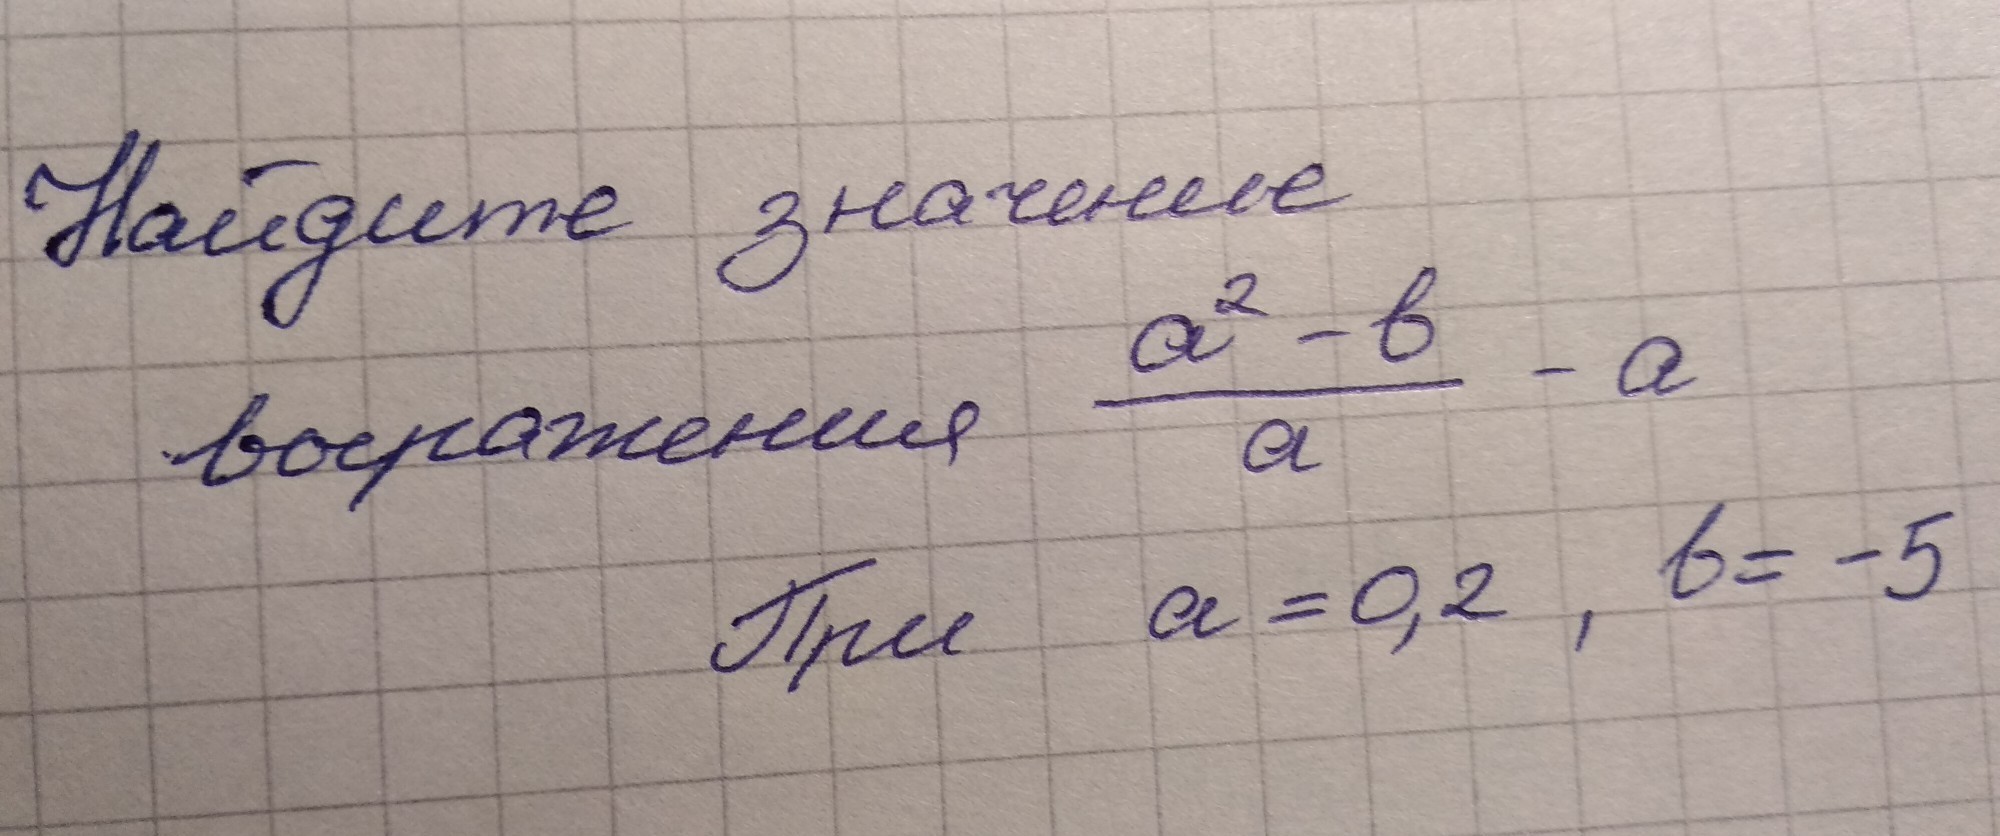 Найдите значение
выражения \frac{a² - b}{a} - a
При a = 0,2 , b = -5